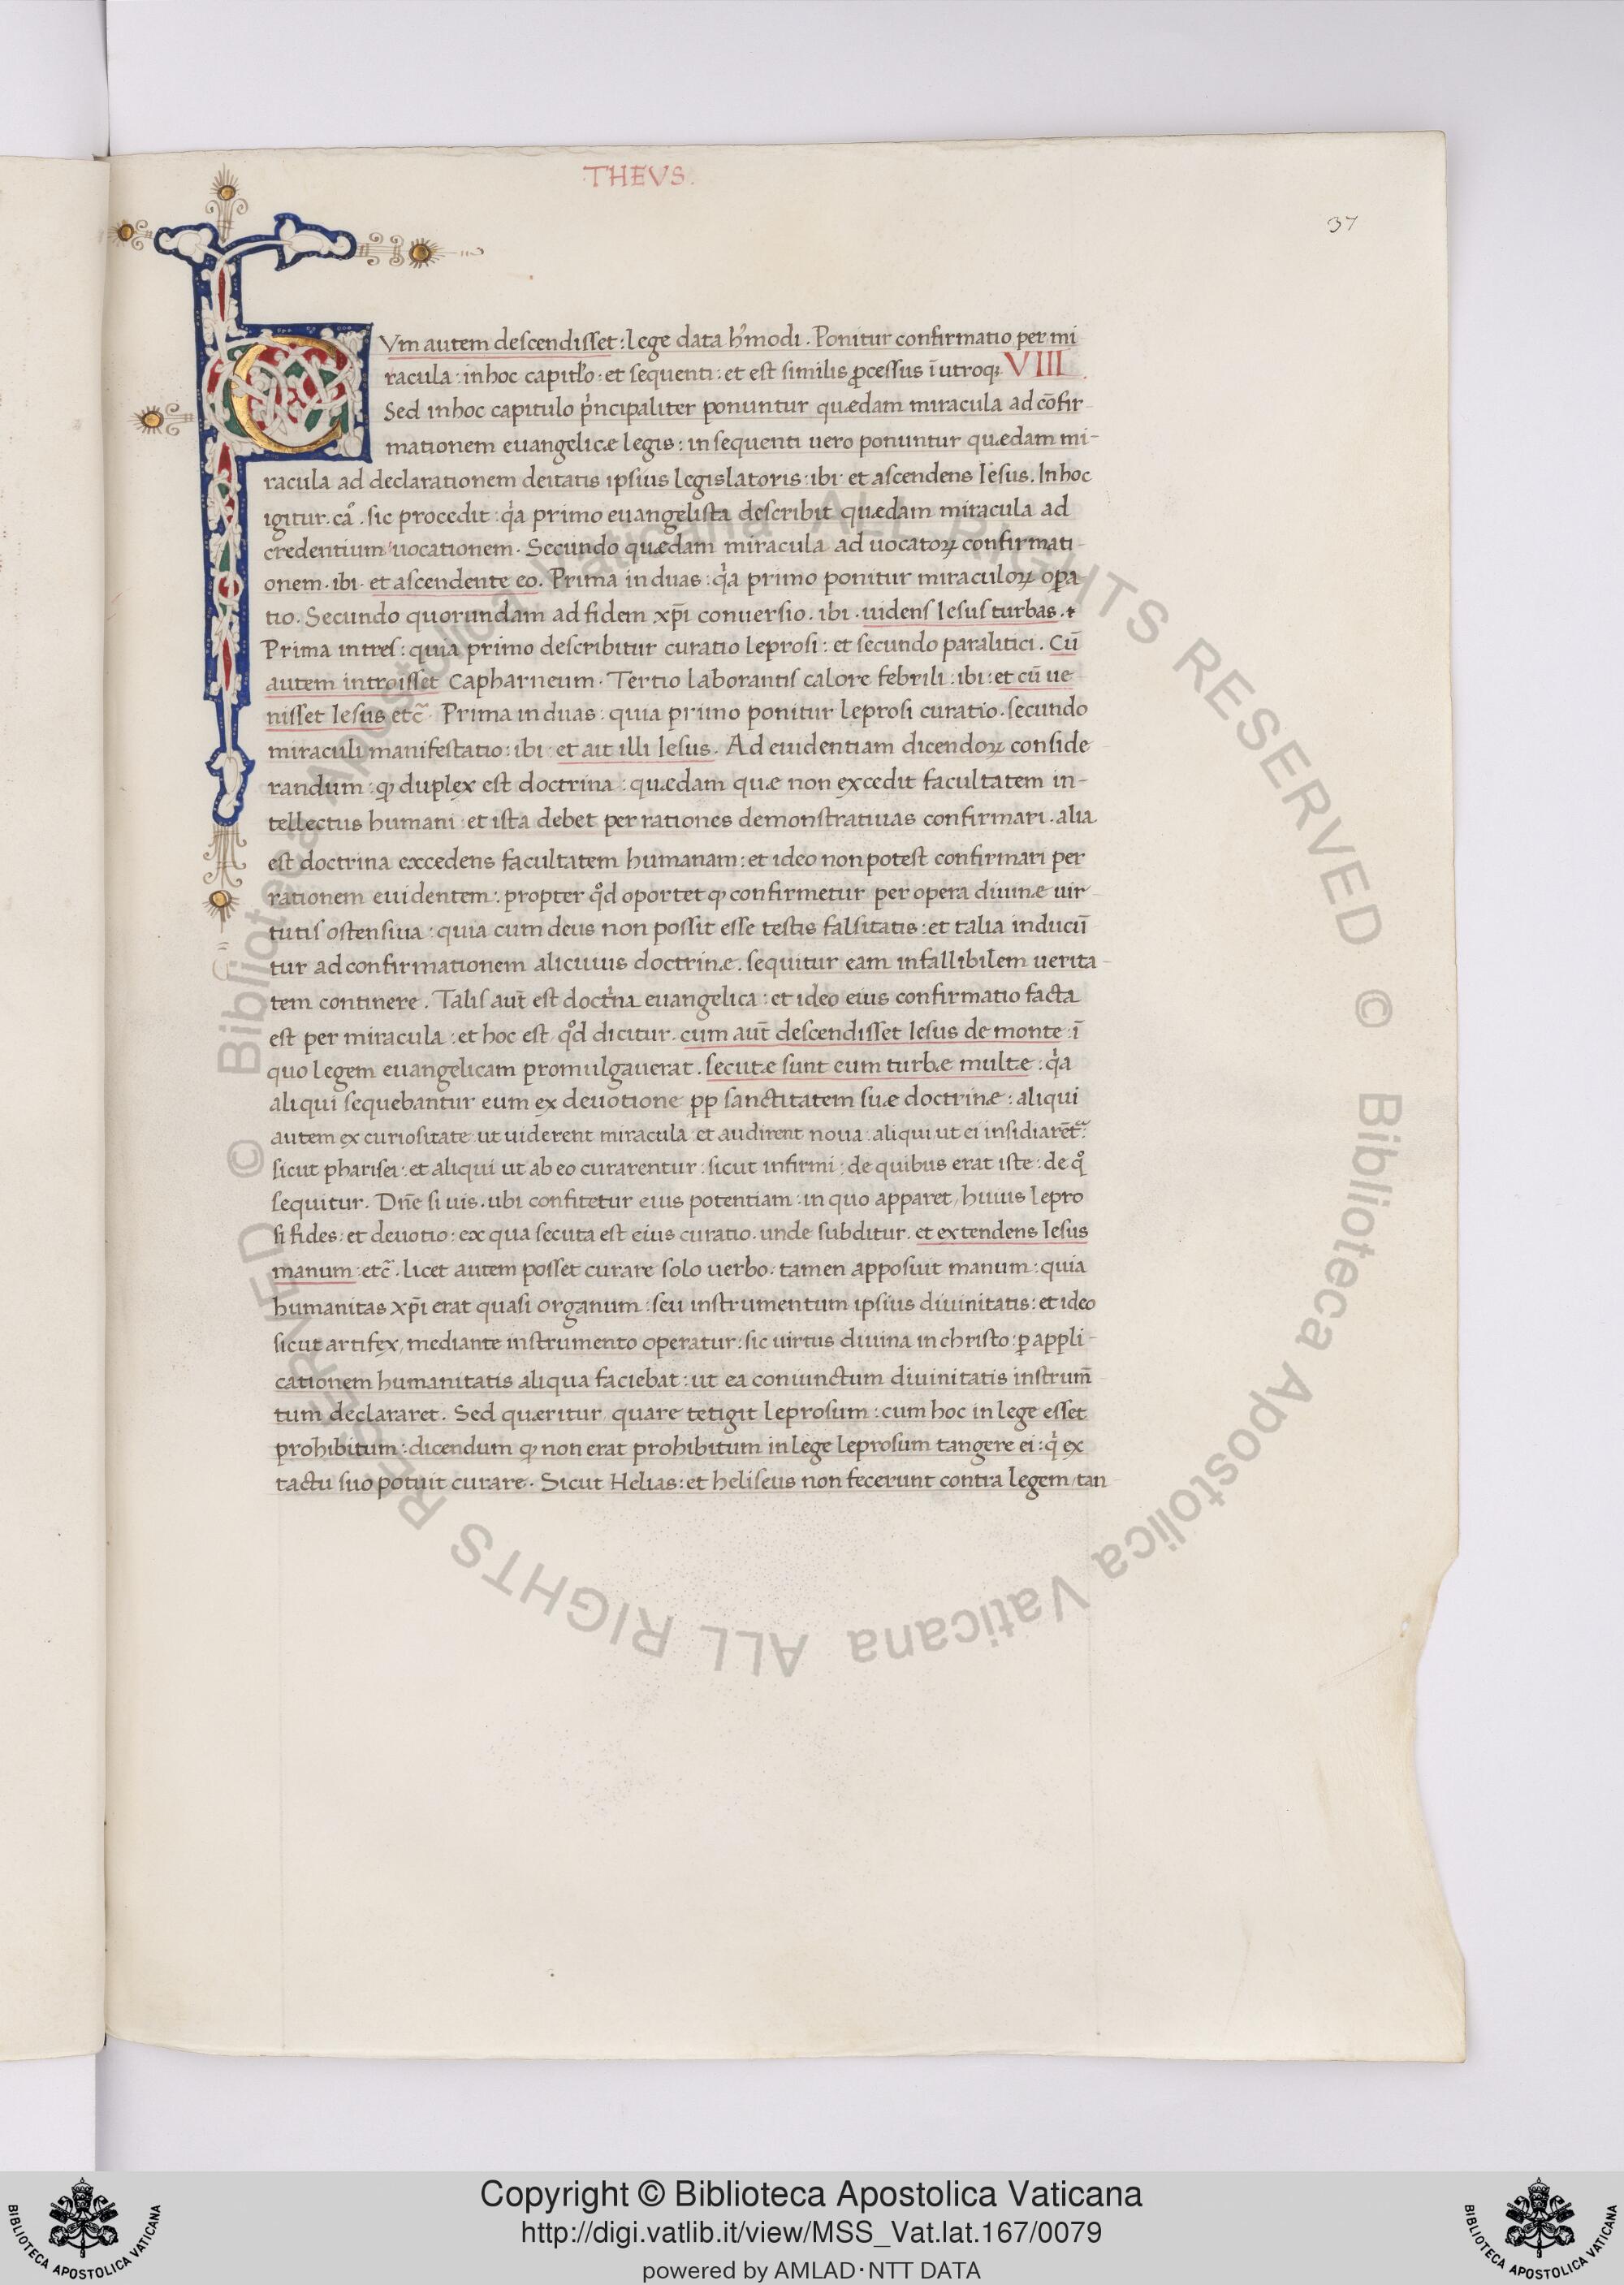 THEVS.
37
CVm autem descendisset: lege data hᵒmodi. Ponitur confirmatio per mi
racula: in hoc capitl̓o: et sequenti: et est similis ꝓcessus ī utroqꝫ VIII
Sed in hoc capitulo pⁱncipaliter ponuntur quædam miracula ad cōfir-
mationem euangelicæ legis: in sequenti uero ponuntur quædam mi-
racula ad declarationem deitatis ipsius legislatoris: ibi: et ascendens Iesus. In hoc
igitur. caᵒ. sic procedit: qⁱa primo euangelista describit quædam miracula ad
credentium uocationem. Secundo quædam miracula ad uocatoꝝ confirmati-
onem. ibi. et ascendente eo. Prima in duas: qⁱa primo ponitur miraculoꝝ oꝑa-
tio. Secundo quorundam ad fidem xp̄i conuersio. ibi. uidens Iesus turbas.
Prima in tres: quia primo describitur curatio leprosi: et secundo paralitici. Cū
autem introisset Capharneum. Tertio laborantis calore febrili: ibi: et cū ue
nisset Iesus etc̃. Prima in duas: quia primo ponitur leprosi curatio. secundo
miraculi manifestatio: ibi: et ait illi Iesus. Ad euidentiam dicendoꝝ conside
randum: ꝙ duplex est doctrina: quædam quæ non excedit facultatem in-
tellectus humani: et ista debet per rationes demonstratiuas confirmari. alia
est doctrina excedens facultatem humanam: et ideo non potest confirmari per
rationem euidentem: propter qᵒd oportet ꝙ confirmetur per opera diuinæ uir-
tutis ostensiua: quia cum deus non possit esse testis falsitatis: et talia inducū
tur ad confirmationem alicuius doctrinæ. sequitur eam infallibilem uerita-
tem continere. Talis aut̄ est doctⁱna euangelica: et ideo eius confirmatio facta
est per miracula: et hoc est qᵒd dicitur. cum aut̄ descendisset Iesus de monte: ī
quo legem euangelicam promulgauerat. secutæ sunt eum turbæ multæ: qⁱa
aliqui sequebantur eum ex deuotione pp sanctitatem suæ doctrinæ: aliqui
autem ex curiositate ut uiderent miracula et audirent noua: aliqui ut ei insidiarēt᷑:
sicut pharisei: et aliqui ut ab eo curarentur: sicut infirmi: de quibus erat iste: de qᵒ
sequitur. Dn̄e si uis. ubi confitetur eius potentiam: in quo apparet, huius lepro
si fides: et deuotio: ex qua secuta est eius curatio. unde subditur. et extendens Iesus
manum etc̃. licet autem posset curare solo uerbo. tamen apposuit manum: quia
humanitas xp̄i erat quasi organum: seu instrumentum ipsius diuinitatis: et ideo
sicut artifex, mediante instrumento operatur: sic uirtus diuina in christo: ꝑ appli-
cationem humanitatis aliqua faciebat: ut ea coniunctum diuinitatis instrum̄
tum declararet. Sed quæritur quare tetigit leprosum: cum hoc in lege esset
prohibitum: dicendum ꝙ non erat prohibitum in lege leprosum tangere ei: qⁱ ex
tactu suo potuit curare. Sicut Helias: et heliseus non fecerunt contra legem, tan
© Biblioteca Apostolica Vaticana ALL RIGHTS RESERVED © Biblioteca Apostolica Vaticana ALL RIGHTS RESERVED
Copyright © Biblioteca Apostolica Vaticana
http://digi.vatlib.it/view/MSS_Vat.lat.167/0079
powered by AMLAD·NTT DATA
BIBLIOTECA APOSTOLICA VATICANA
BIBLIOTECA APOSTOLICA VATICANA